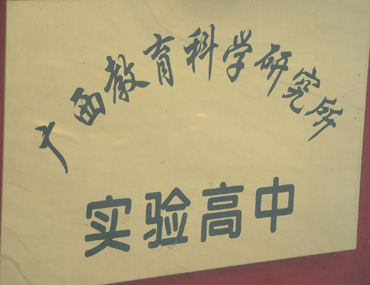 广西教育科学研究所
实验高中